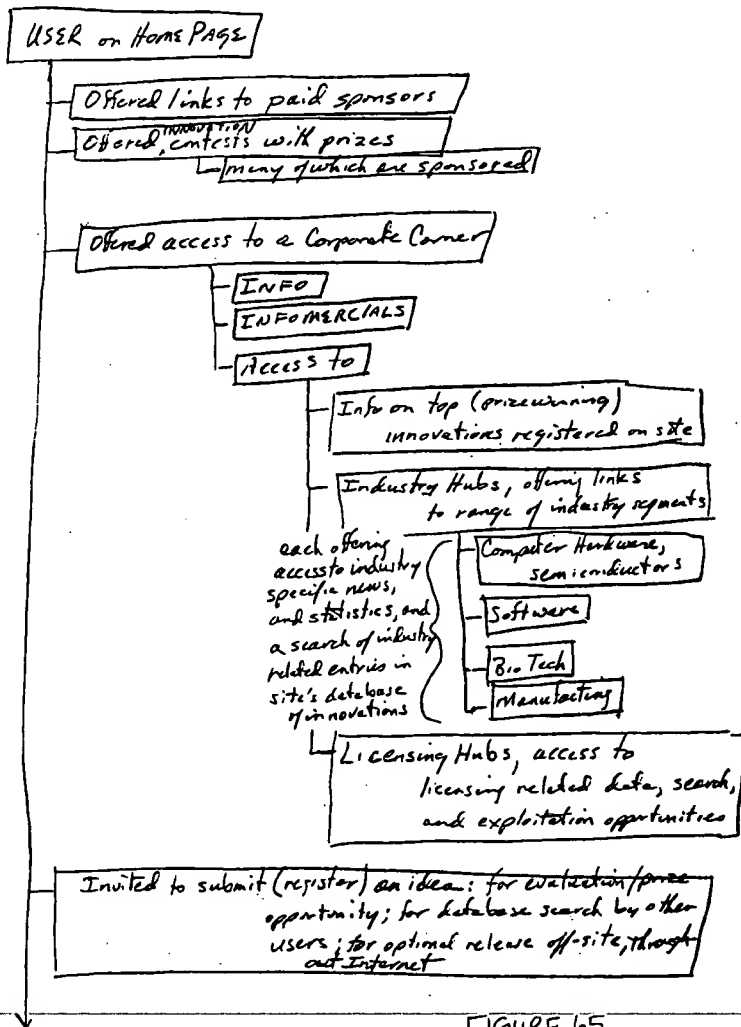 USER on HOME PAGE
Offered links to paid sponsors
INNOVATION
Offered, contests with prizes
many of which are sponsored
Offered access to a Corporate Corner
INFO
INFOMERCIALS
Access to
Info on top (prizewinning)
innovations registered on site
Industry Hubs, offering links
to range of industry segments
each offering
access to industry
specific news,
and statistics, and
a search of industry
related entries in
site's database
of innovations
Computer Hardware,
semiconductors
Software
BioTech
Manufacting
Licensing Hubs, access to
licensing related data, search,
and exploitation opportunities
Invited to submit (register) an idea: for evaluation/prize
opportunity; for database search by other
users; for optional release off-site, through
out Internet
FIGURE 65